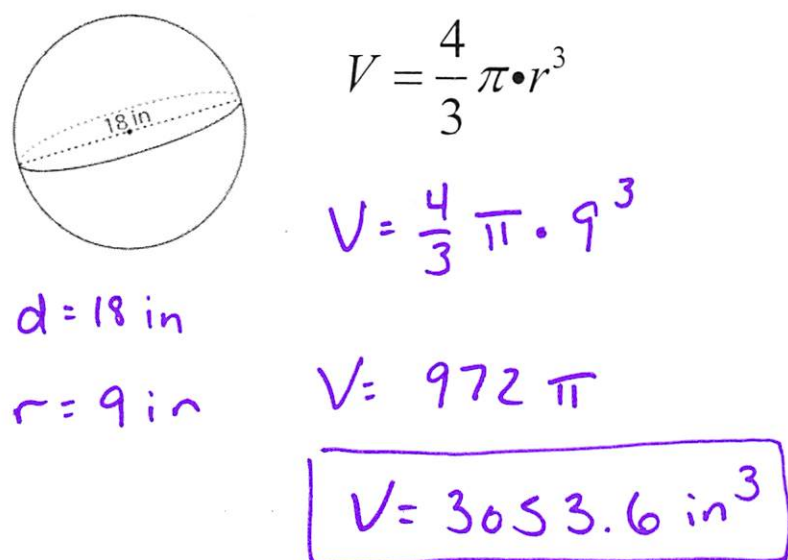 18 in
V = \frac{4}{3} π•r³
V = \frac{4}{3} π • 9³
d = 18 in
r = 9 in
V = 972 π
V = 3053.6 in³